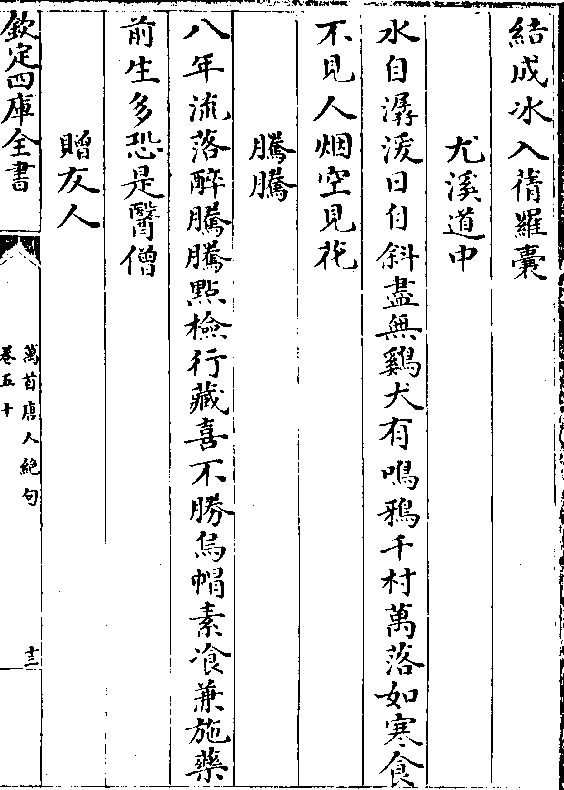 結成冰入蒨羅囊
尤溪道中
水自潺湲日自斜盡無鷄犬有鳴鴉千村萬落如寒食
不見人烟空見花
騰騰
八年流落醉騰騰㸃檢行藏喜不勝烏帽素飡兼施藥
前生多恐是醫僧
贈友人
欽定四庫全書
萬首唐人絶句
卷五十
十二